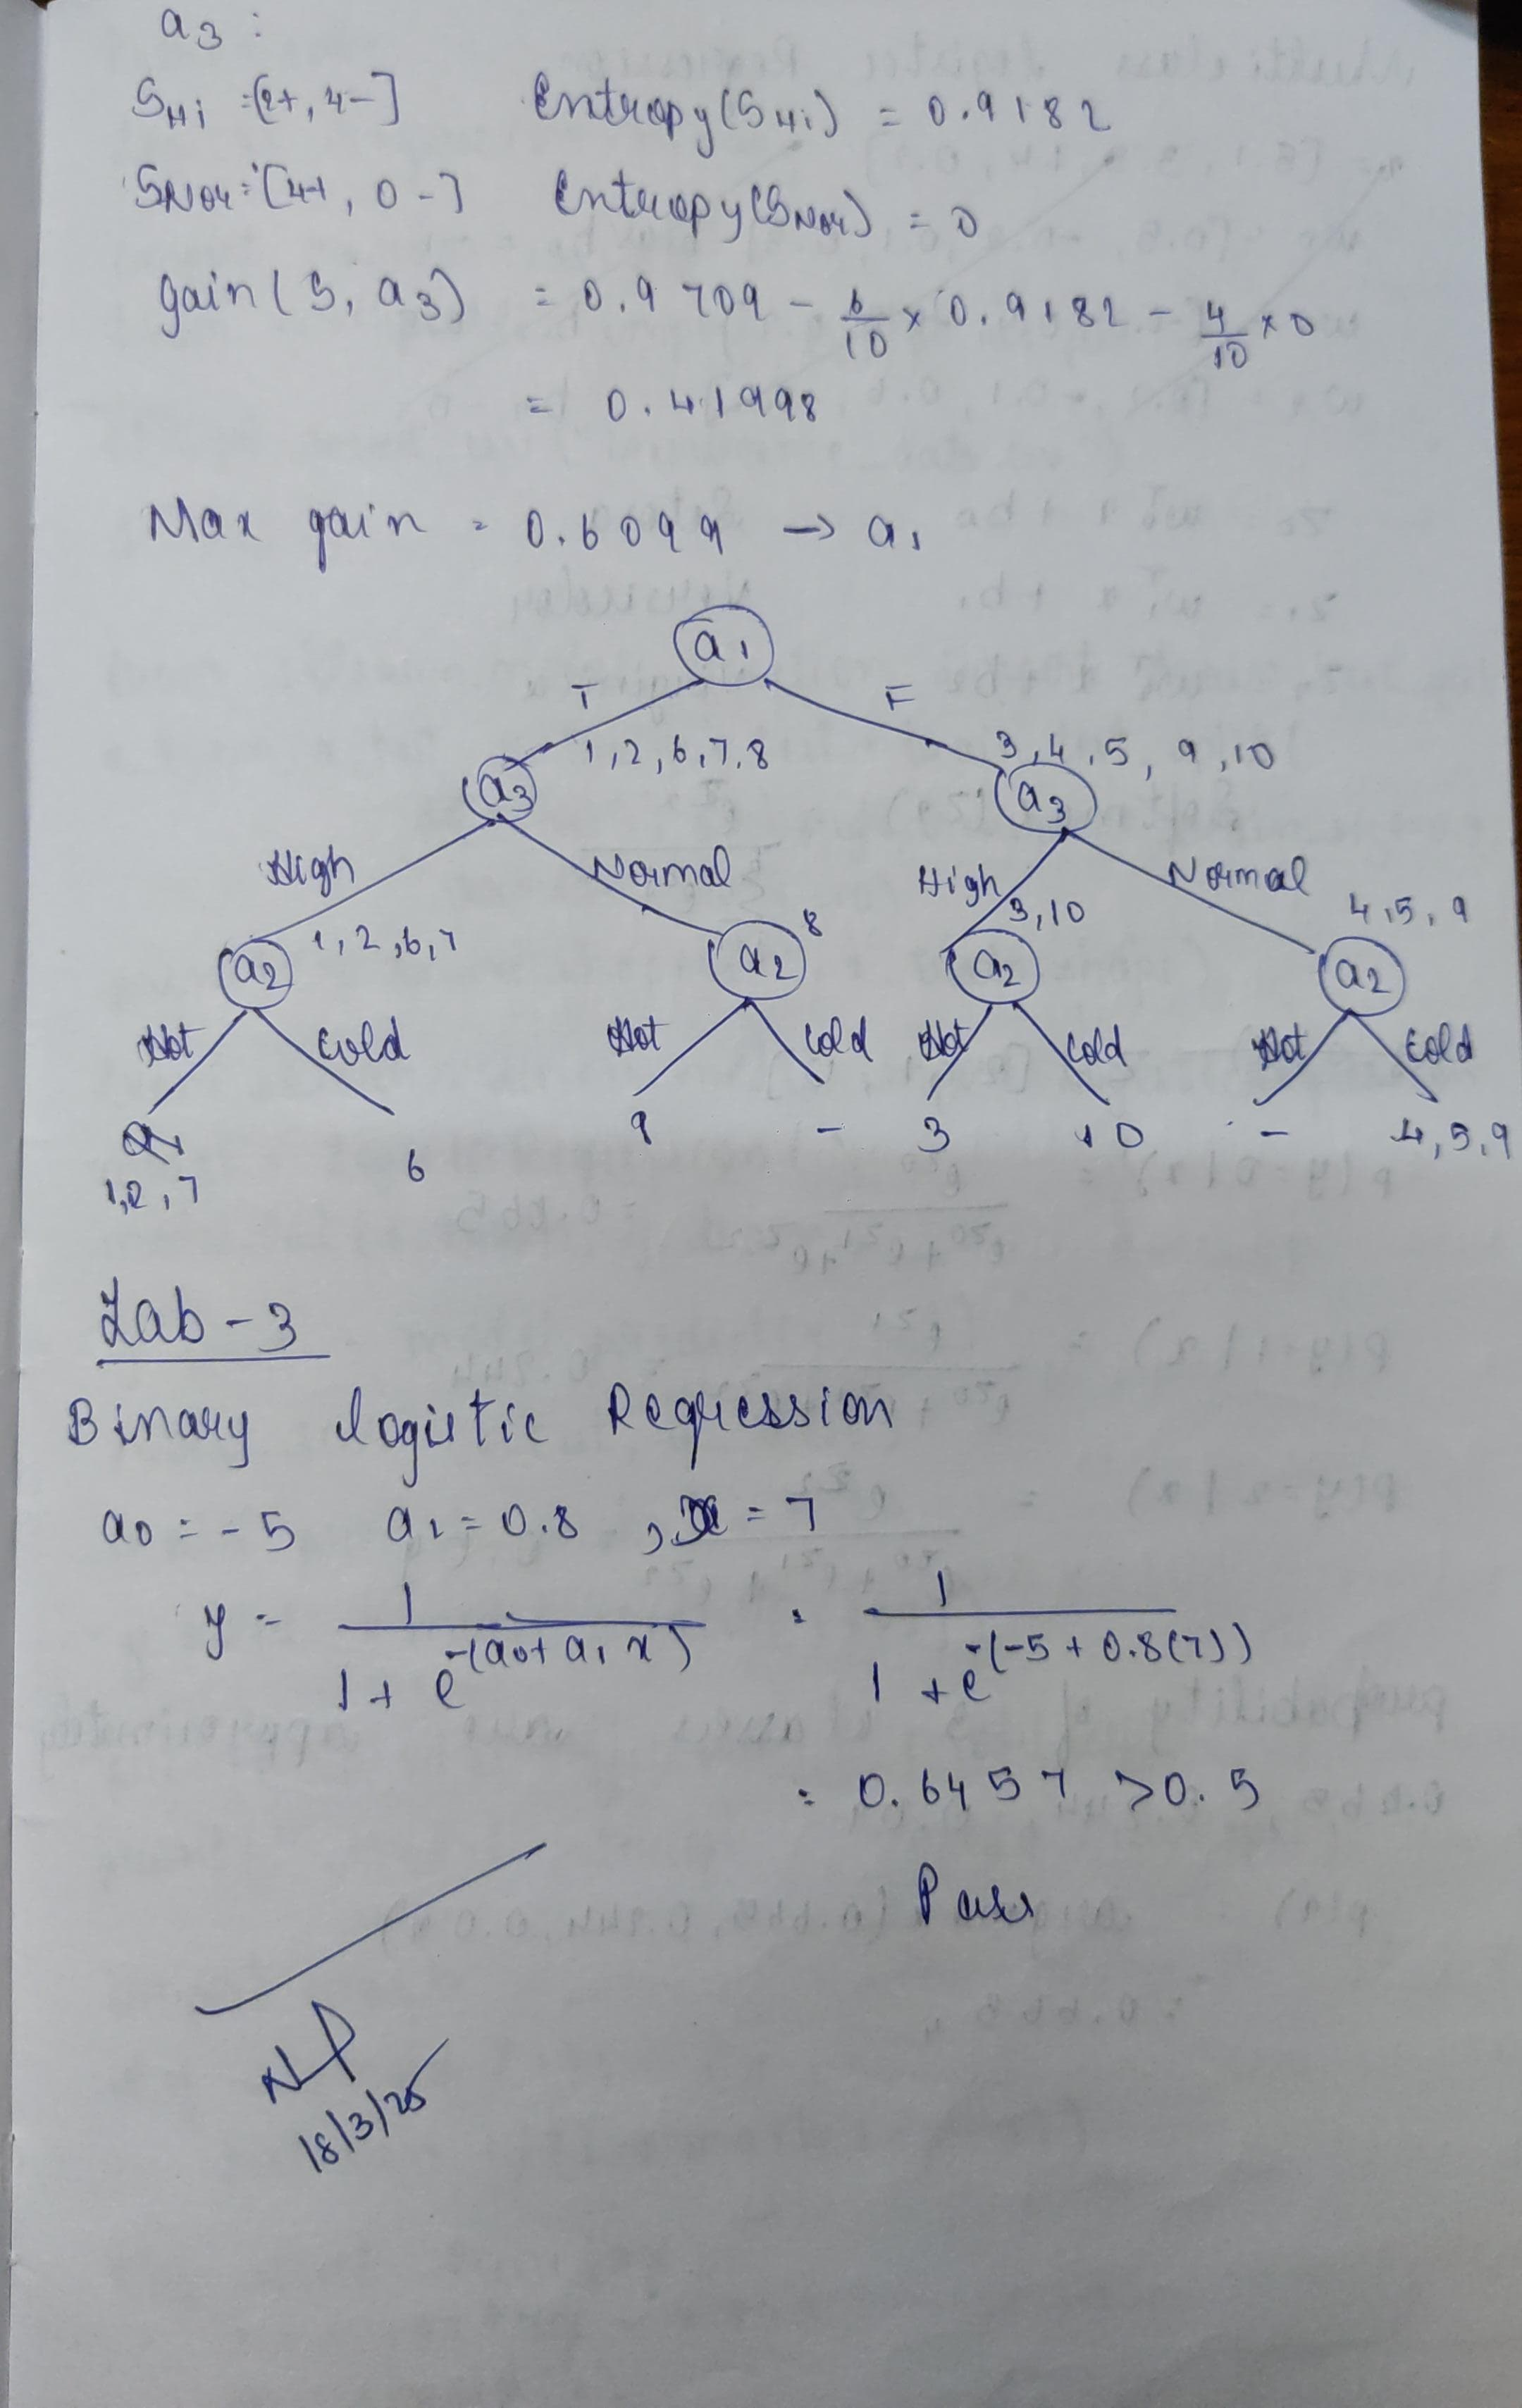 a3 :
SHi =[2+, 4-] Entropy(SHi) = 0.9182
SNor = [4+, 0-] Entropy(SNor) = 0
gain(S, a3) = 0.9709 - 6/10 x 0.9182 - 4/10 x 0
= 0.41998
Max gain = 0.6099 → a1
a1
T F
1,2,6,7,8 3,4,5,9,10
a3 a3
High Normal High Normal
1,2,6,7 8 3,10 4,5,9
a2 a2 a2 a2
Hot Cold Hot Cold Hot Cold Hot Cold
1,2,7 6 - 3 10 - 4,5,9
Lab-3
Binary logistic Regression
a0 = -5 a1 = 0.8 , x = 7
y = 1/(1 + e^-(a0+a1x)) = 1/(1 + e^-(-5+0.8(7)))
= 0.6457 >0.5
Pass
NP
18/3/25